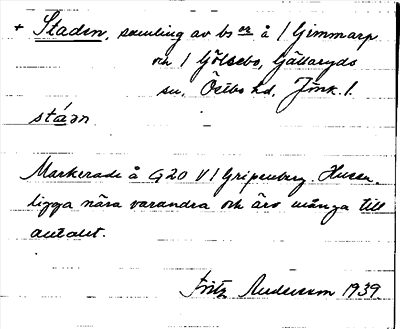 + Staden, samling av bs er å 1 Gimmarp
och 1 Götsebo, Gällaryds
sn, Östbo hd, Jönk. l.
stádn
Markerade å G20 V 1 Gripenberg. Husen
ligga nära varandra och äro många till
antalet.
Fritz Andersson 1939